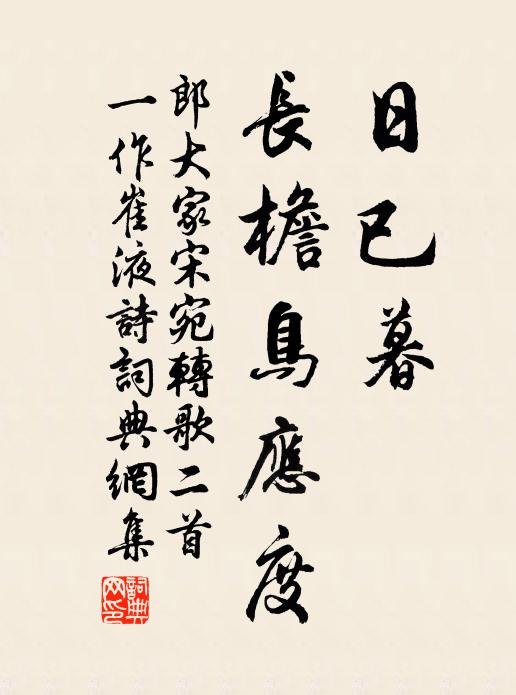 日已暮
長檐鳥應度
郎大家宋宛轉歌二首
一作崔液詩詞典網集
詞典網印